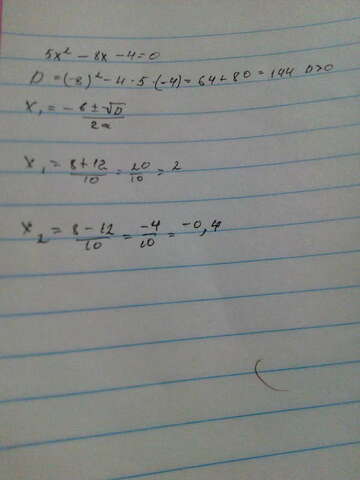 5x² - 8x - 4 = 0
D = (-8)² - 4 · 5 · (-4) = 64 + 80 = 144 D>0
x₁ = -b ± √D / 2a
x₁ = 8 + 12 / 10 = 20 / 10 = 2
x₂ = 8 - 12 / 10 = -4 / 10 = -0,4